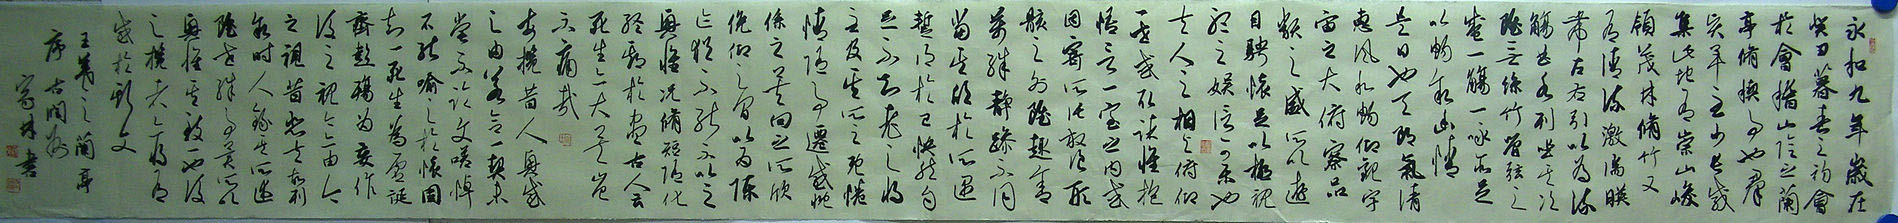 永和九年歲在
癸丑暮春之初會
於會稽山陰之蘭
亭脩禊事也羣
賢畢至少長咸
集此地有崇山峻
領茂林脩竹又
有清流激湍暎
帶左右引以為流
觴曲水列坐其次
雖無絲竹管弦之
盛一觴一詠亦足
以暢敘幽情
是日也天朗氣清
惠風和暢仰觀宇
宙之大俯察品
類之盛所以遊
目騁懷足以極視
聽之娛信可樂也
夫人之相與俯仰
一世或取諸懷抱
悟言一室之內或
因寄所託放浪形
骸之外雖趣舍
萬殊靜躁不同
當其欣於所遇
暫得於己快然自
足不知老之將
至及其所之既惓
情隨事遷感慨
係之矣向之所欣
俛仰之間以為陳
迹猶不能不以之
興懷況脩短隨化
終期於盡古人云
死生亦大矣豈
不痛哉
每攬昔人興感
之由若合一契未
嘗不臨文嗟悼
不能喻之於懷固
知一死生為虛誕
齊彭殤為妄作
後之視今亦由今
之視昔悲夫故列
敘時人錄其所述
雖世殊事異所以
興懷其致一也後
之攬者亦將有
感於斯文
王羲之蘭亭
序 古閩
家林書